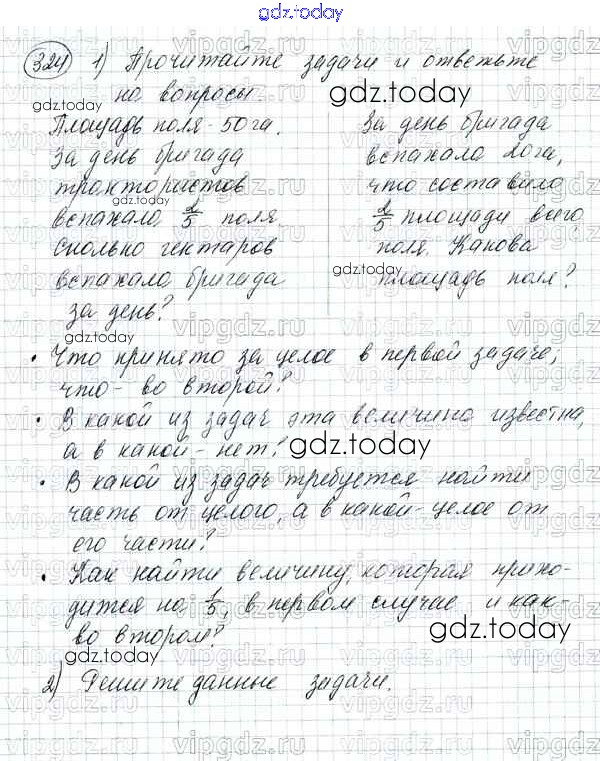 gdz.today
324 1) Прочитайте задачи и ответьте
на вопросы.
gdz.today
Площадь поля - 50 га.
За день бригада
трактористов
вспахало 2/5 поля
Сколько гектаров
вспахала бригада
за день?
За день бригада
вспахала 20 га,
что составило
2/5 площади всего
поля. Какова
площадь поля?
gdz.today
• Что принято за целое в первой задаче,
что - во второй?
• В какой из задач эта величина известна,
а в какой - нет?
gdz.today
• В какой из задач требуется найти
часть от целого, а в какой - целое от
его части?
• Как найти величину, которая прихо-
дится на 1/5, в первом случае и как -
во втором?
gdz.today
2) Решите данные задачи.
vipgdz.ru